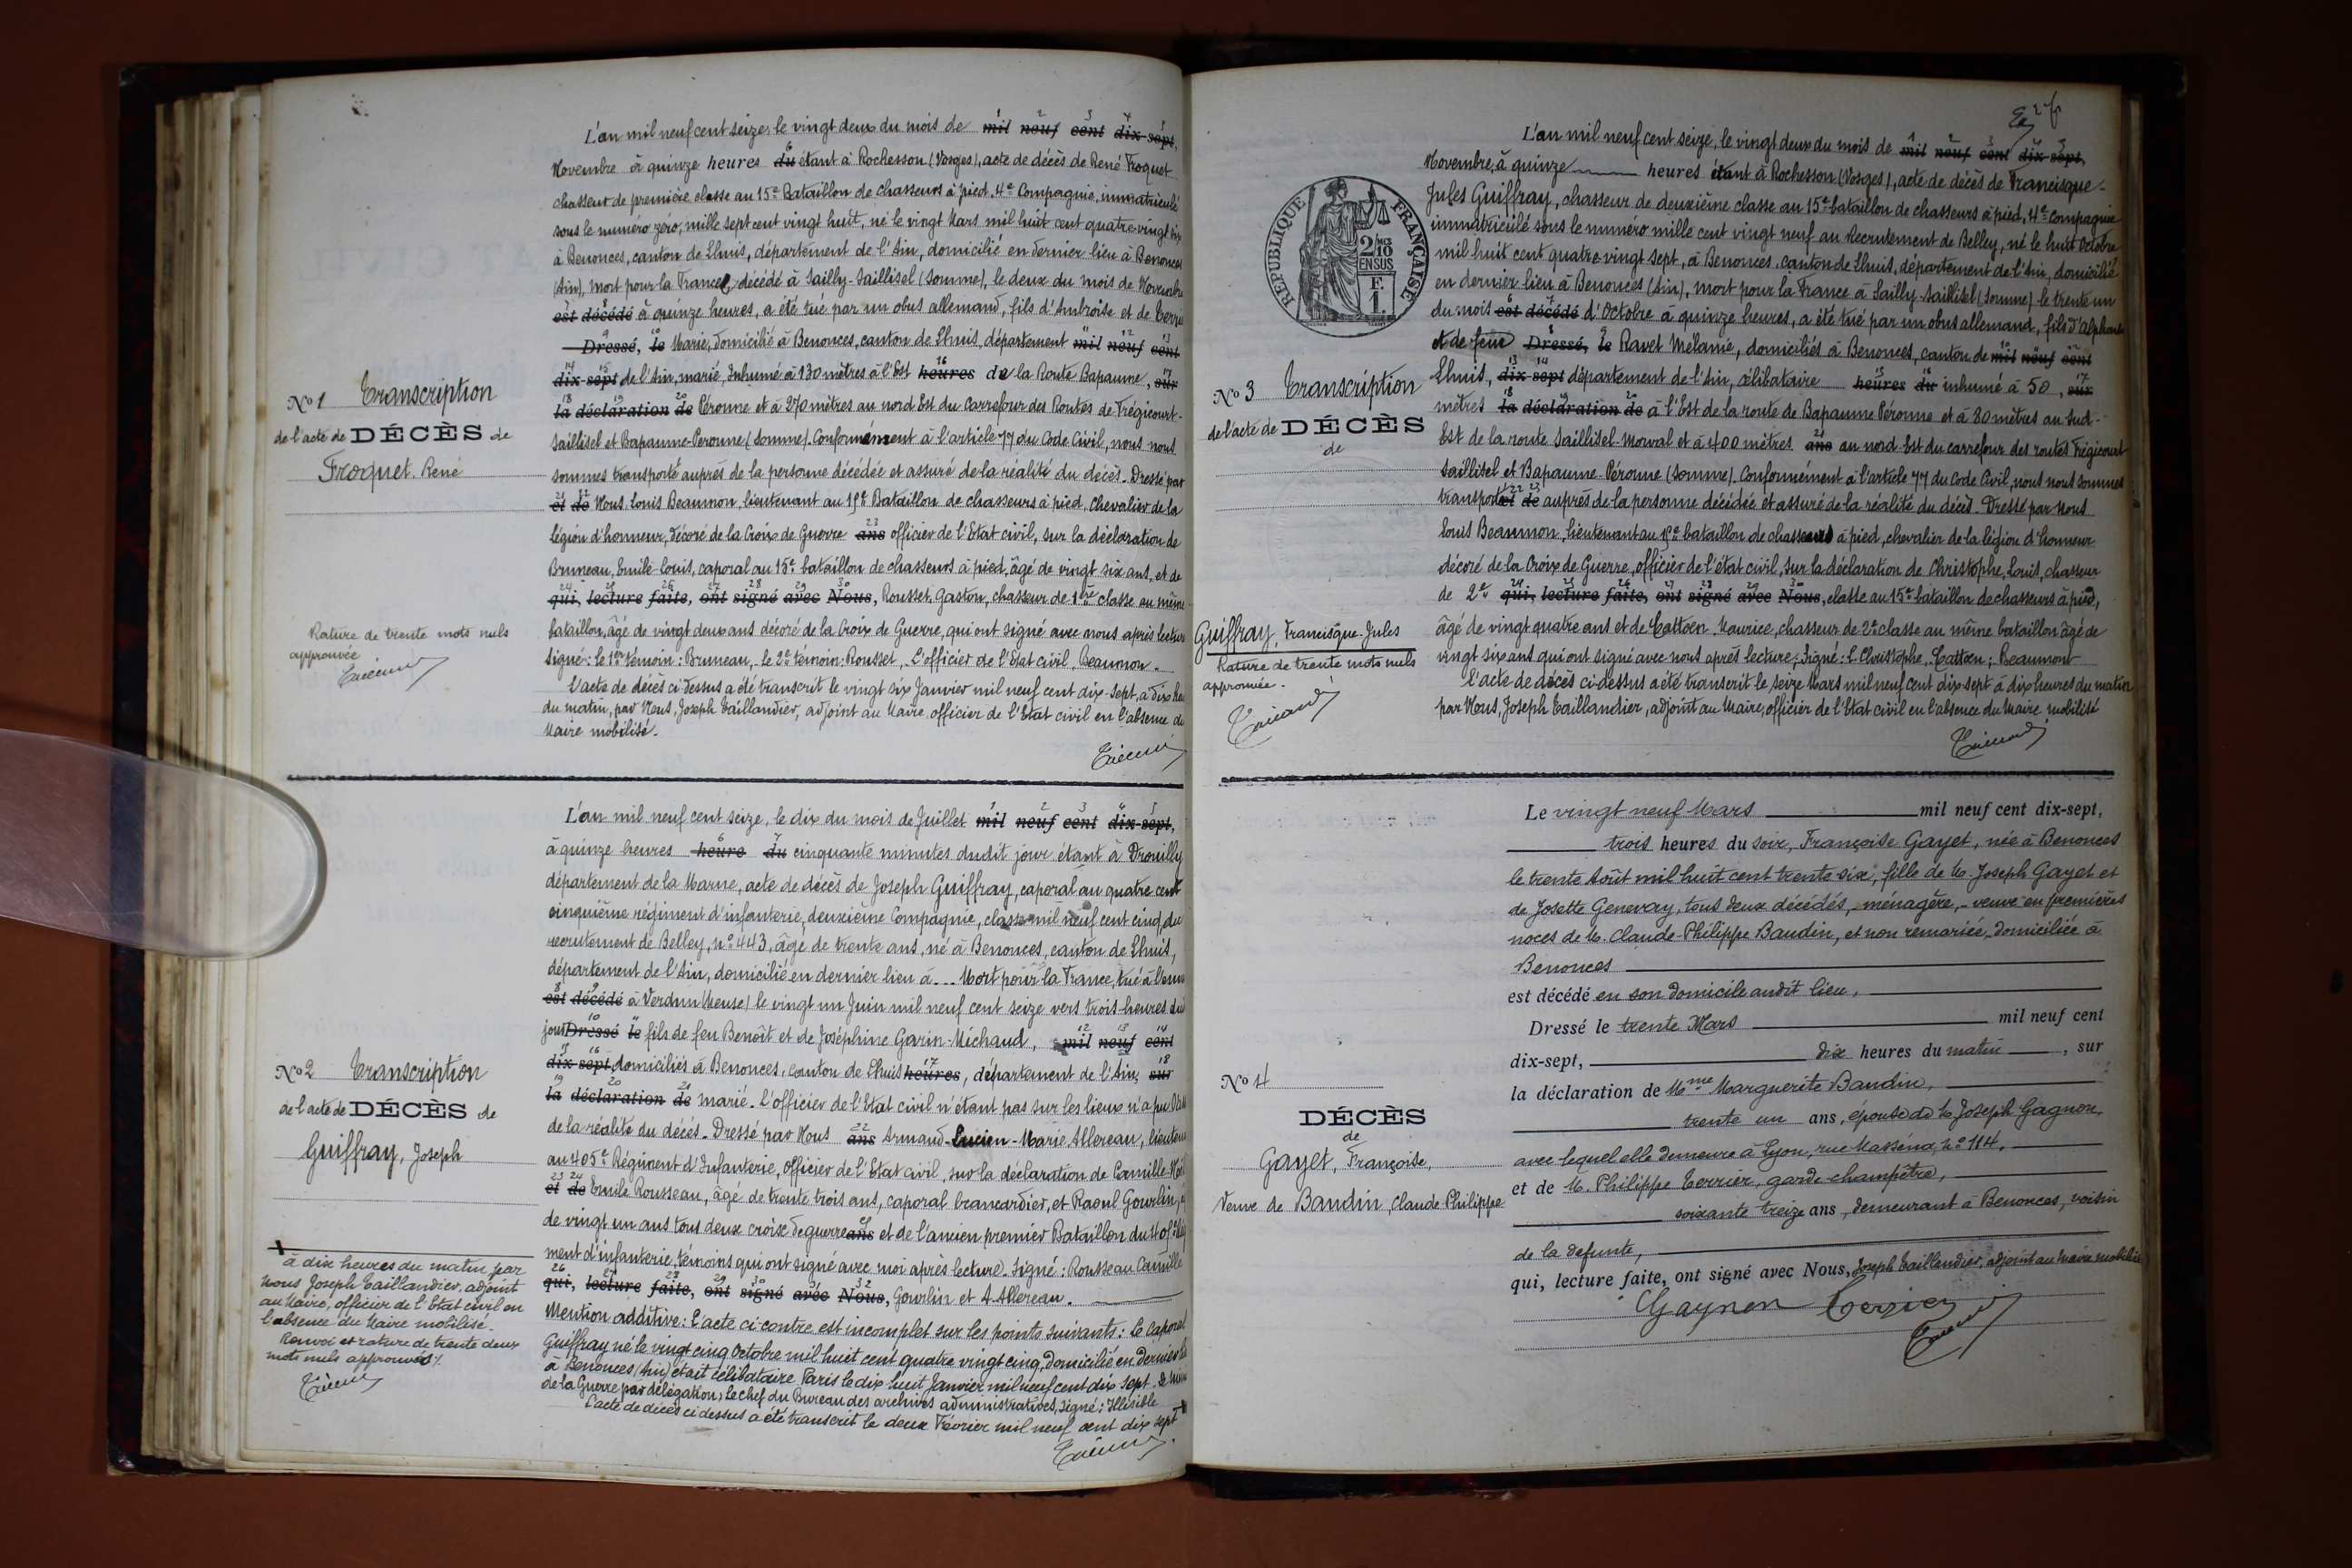 L'an mil neuf cent seize, le vingt deux du mois de mil neuf cent dix-sept,
Novembre à quinze heures du étant à Rochesson (Vosges), acte de décès de René Froquet
chasseur de première classe au 15e Bataillon de chasseurs à pied, 4e Compagnie, immatriculé
sous le numéro zéro, mille sept cent vingt huit, né le vingt Mars mil huit cent quatre-vingt dix
à Benonces, canton de Lhuis, département de l'Ain, domicilié en dernier lieu à Benonces
(Ain), mort pour la France, décédé à Sailly-Saillisel (Somme), le deux du mois de Novembre
est décédé à quinze heures, a été tué par un obus allemand, fils d'Ambroise et de
Dressé, le Marie, domicilié à Benonces, canton de Lhuis, département mil neuf cent
dix-sept de l'Ain, marié, Inhumé à 130 mètres à l'Est heures de la Route Bapaume, sur
la déclaration de Péronne et à 270 mètres au nord Est du Carrefour des Routes de Frégicourt-
Saillisel et Bapaume-Peronne (Somme). Conformément à l'article 77 du Code Civil, nous nous
sommes transporté auprès de la personne décédée et assuré de la réalité du décès. Dressé par
et de Nous, Louis Beaumon, lieutenant au 15e Bataillon de chasseurs à pied, Chevalier de la
légion d'honneur, décoré de la Croix de Guerre ans officier de l'Etat civil, sur la déclaration de
Bruneau, Emile-Louis, caporal au 15e bataillon de chasseurs à pied, âgé de vingt six ans, et de
qui, lecture faite, ont signé avec Nous, Rousset, Gaston, chasseur de 1re classe au même
bataillon, âgé de vingt deux ans décoré de la Croix de Guerre, qui ont signé avec nous après lecture
Signé: le 1er témoin: Bruneau, - le 2e témoin: Rousset, L'officier de l'Etat civil, Beaumon.
L'acte de décès ci-dessus a été transcrit le vingt six Janvier mil neuf cent dix-sept, à dix
du matin, par Nous, Joseph Taillandier, adjoint au Maire, officier de l'Etat civil en l'absence du
Maire mobilisé.
No 1 Transcription
de l'acte de DÉCÈS de
Froquet. René
Rature de trente mots nuls
approuvée
L'an mil neuf cent seize, le dix du mois de Juillet mil neuf cent dix-sept,
à quinze heures heure du cinquante minutes dudit jour étant à Drouilly
département de la Marne, acte de décès de Joseph Guiffray, caporal au quatre cent
cinquième régiment d'infanterie, deuxième Compagnie, classe mil neuf cent cinq, du
recrutement de Belley, no 443, âgé de trente ans, né à Benonces, canton de Lhuis,
département de l'Ain, domicilié en dernier lieu à ... Mort pour la France, tué à
est décédé à Verdun (Meuse) le vingt un Juin mil neuf cent seize vers trois heures du
jour Dressé le fils de feu Benoît et de Joséphine Garin-Michaud, mil neuf cent
dix-sept domiciliés à Benonces, canton de Lhuis heures, département de l'Ain, sur
la déclaration de marié. L'officier de l'Etat civil n'étant pas sur les lieux n'a pu
de la réalité du décès. Dressé par Nous ans Armand-Lucien-Marie Allereau,
au 405e Régiment d'Infanterie, Officier de l'Etat civil, sur la déclaration de Camille
et de Emile Rousseau, âgé de trente trois ans, caporal brancardier, et Raoul Gourlin,
de vingt un ans tous deux croix de guerre ans et de l'ancien premier Bataillon du
ment d'infanterie, témoins qui ont signé avec moi après lecture. Signé: Rousseau Camille
qui, lecture faite, ont signé avec Nous, Gourlin et A. Allereau.
Mention additive: L'acte ci-contre est incomplet sur les points suivants: Le caporal
Guiffray né le vingt cinq Octobre mil huit cent quatre vingt cinq, domicilié en dernier
à Benonces (Ain) était célibataire. Paris le dix huit Janvier mil neuf cent dix sept. Le
de la Guerre par délégation, le chef du Bureau des archives administratives, Signé: Illisible
L'acte de décès ci dessus a été transcrit le deux Février mil neuf cent dix sept
No 2 Transcription
de l'acte de DÉCÈS de
Guiffray, Joseph
à dix heures du matin, par
nous Joseph Taillandier, adjoint
au Maire, officier de l'Etat civil en
l'absence du Maire mobilisé.
Renvoi et rature de trente deux
mots nuls approuvés
RÉPUBLIQUE FRANÇAISE
2/10
EN SUS
F.
1.
L'an mil neuf cent seize, le vingt deux du mois de mil neuf cent dix-sept,
Novembre, à quinze heures étant à Rochesson (Vosges), acte de décès de Francisque-
Jules Guiffray, chasseur de deuxième classe au 15e bataillon de chasseurs à pied, 4e compagnie
immatriculé sous le numéro mille cent vingt neuf au Recrutement de Belley, né le huit Octobre
mil huit cent quatre-vingt sept, à Benonces, canton de Lhuis, département de l'Ain, domicilié
en dernier lieu à Benonces (Ain), mort pour la France à Sailly-Saillisel (Somme) le trente un
du mois est décédé d'Octobre à quinze heures, a été tué par un obus allemand, fils d'Alphonse
et de feue Dressé, le Ravet Mélanie, domiciliés à Benonces, canton de mil neuf cent
Lhuis, dix-sept département de l'Ain, célibataire heures du inhumé à 50, sur
mètres la déclaration de à l'Est de la route de Bapaume Péronne et à 80 mètres au Sud-
Est de la route Saillisel-Morval et à 400 mètres ans au nord-Est du carrefour des routes Frégicourt
Saillisel et Bapaume-Péronne (Somme). Conformément à l'article 77 du Code Civil, nous nous sommes
transporté et de auprès de la personne décédée et assuré de la réalité du décès. Dressé par Nous
Louis Beaumon, lieutenant au 15e bataillon de chasseurs à pied, chevalier de la légion d'honneur
décoré de la Croix de Guerre, officier de l'état civil, sur la déclaration de Christophe, Louis, chasseur
de 2e qui, lecture faite, ont signé avec Nous, classe au 15e bataillon de chasseurs à pied,
âgé de vingt quatre ans et de Cattoen, Maurice, chasseur de 2e classe au même bataillon âgé de
vingt six ans qui ont signé avec nous après lecture; Signé: L. Christophe, Cattoen; Beaumont
L'acte de décès ci-dessus a été transcrit le seize Mars mil neuf cent dix-sept à dix heures du matin
par Nous, Joseph Taillandier, adjoint au Maire, officier de l'Etat civil en l'absence du Maire mobilisé
No 3 Transcription
de l'acte de DÉCÈS
de
Guiffray, Francisque-Jules
Rature de trente mots nuls
approuvée.
Le vingt neuf Mars mil neuf cent dix-sept,
trois heures du soir, Françoise Gayet, née à Benonces
le trente Août mil huit cent trente six, fille de M. Joseph Gayet et
de Josette Genevay, tous deux décédés, - ménagère, - veuve en premières
noces de M. Claude-Philippe Baudin, et non remariée, domiciliée à
Benonces
est décédé en son domicile audit lieu,
Dressé le trente Mars mil neuf cent
dix-sept, dix heures du matin, sur
la déclaration de Mme Marguerite Baudin,
trente un ans, épouse de M. Joseph Gagnon,
avec lequel elle demeure à Lyon, rue Masséna, no 114,
et de M. Philippe Terrier, garde-champêtre,
soixante treize ans, demeurant à Benonces, voisin
de la defunte,
qui, lecture faite, ont signé avec Nous, Joseph Taillandier, adjoint au Maire mobilisé
Gagnon Terrier
No 4
DÉCÈS
de
Gayet, Françoise,
Veuve de Baudin, Claude Philippe